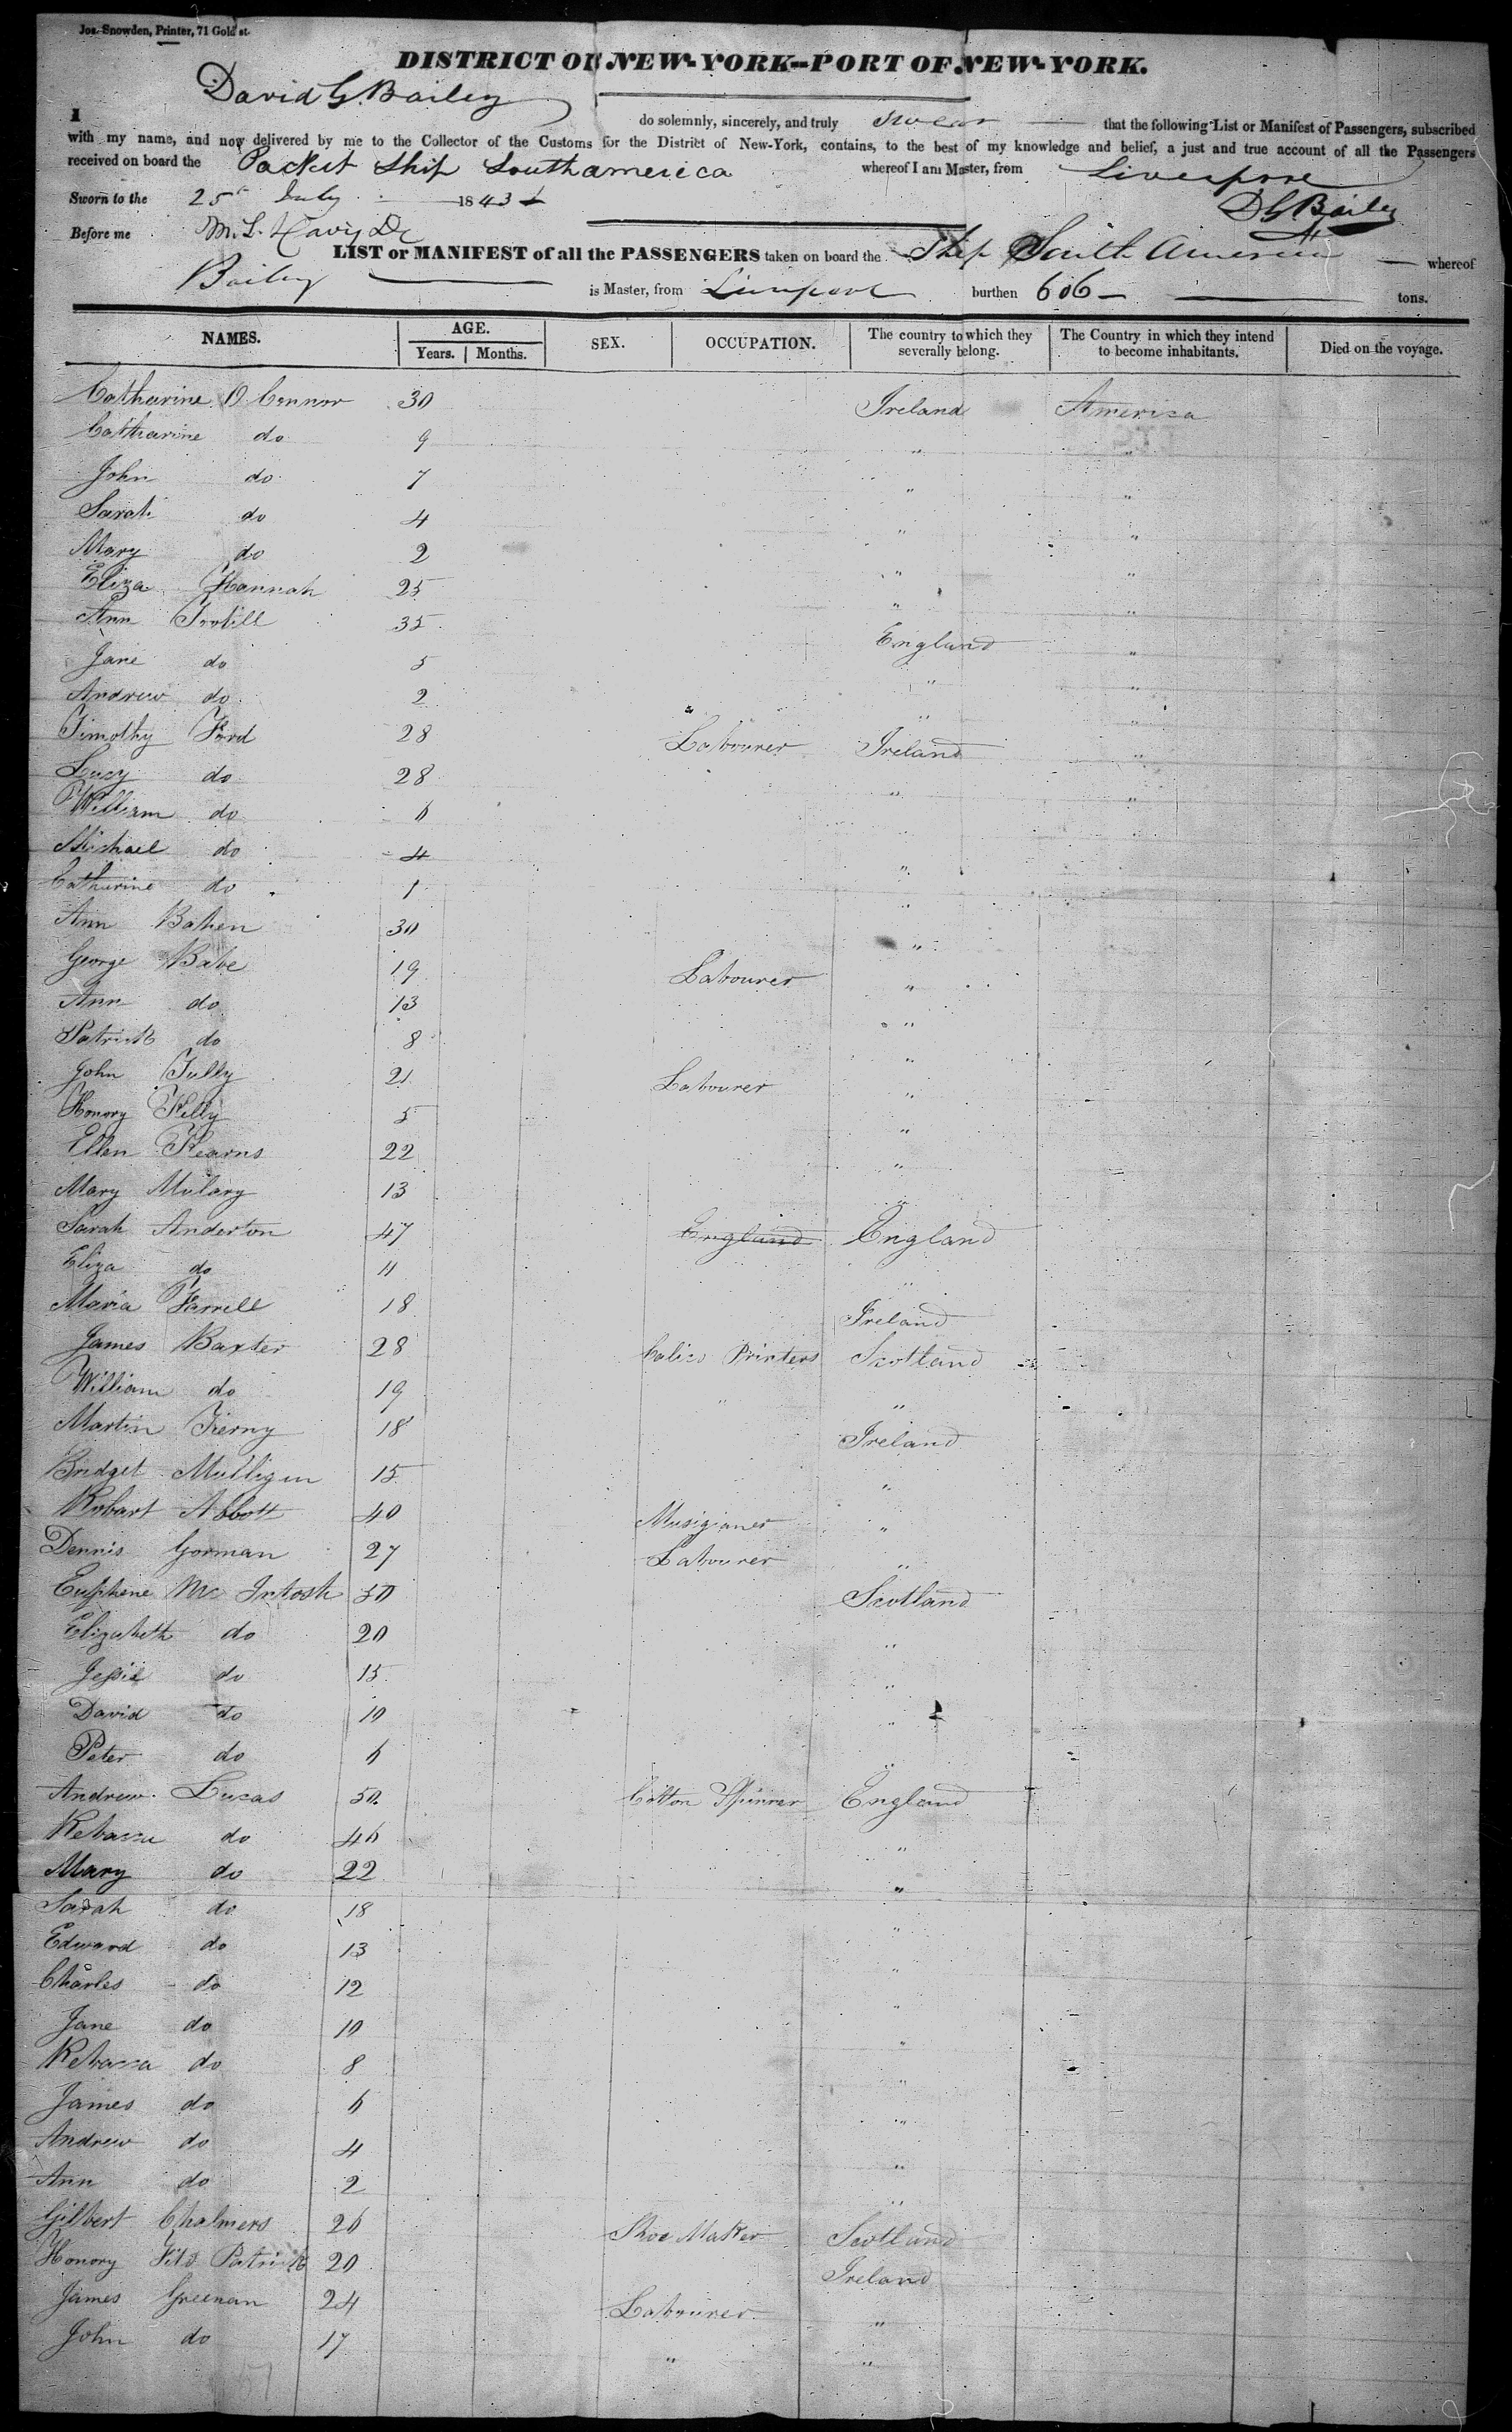 Jos. Snowden, Printer, 71 Gold st.
DISTRICT OF NEW-YORK--PORT OF NEW-YORK.
I David G. Bailey do solemnly, sincerely, and truly swear that the following List or Manifest of Passengers, subscribed
with my name, and now delivered by me to the Collector of the Customs for the District of New-York, contains, to the best of my knowledge and belief, a just and true account of all the Passengers
received on board the Packet Ship Southamerica whereof I am Master, from Liverpool
Sworn to the 25 July 1843 D G Bailey
Before me M. L. Davis
LIST or MANIFEST of all the PASSENGERS taken on board the Ship South America whereof
Bailey is Master, from Liverpool burthen 606 tons.
NAMES. AGE. Years. Months. SEX. OCCUPATION. The country to which they severally belong. The Country in which they intend to become inhabitants. Died on the voyage.
Catharine O Connor 30 Ireland America
Catharine do 9 " "
John do 7 " "
Sarah do 4 " "
Mary do 2 " "
Eliza Hannah 25 " "
Ann 35 England "
Jane do 5 " "
Andrew do 2 " "
Timothy Ford 28 Labourer Ireland "
Lucy do 28 " "
William do 6 "
Michael do 4 "
Catharine do 1 "
Ann Bahen 30 "
George Babe 19 Labourer "
Ann do 13 "
Patrick do 8 "
John Tully 21 Labourer "
Honory Kelly 5 "
Ellen Kearns 22 "
Mary Mulary 13 "
Sarah Anderton 47 England England
Eliza do 11 "
Maria Farrell 18 Ireland
James Baxter 28 Calico Printers Scotland
William do 19 " "
Martin Tierny 18 Ireland
Bridget Mulligan 15 "
Robart Abbott 40 Musigianer "
Dennis Gorman 27 Labourer "
Euphene Mc Intosh 50 Scotland
Elizabeth do 20 "
Jessie do 15 "
David do 10 "
Peter do 6 "
Andrew Lucas 50 Cotton Spinner England
Rebacca do 46 "
Mary do 22 "
Sarah do 18 "
Edward do 13 "
Charles do 12 "
Jane do 10 "
Rebacca do 8 "
James do 6 "
Andrew do 4 "
Ann do 2 "
Gilbert Chalmers 26 Shoe Maker Scotland
Honory Fits Patrick 20 Ireland
James Greenan 24 Labourer "
John do 17 " "